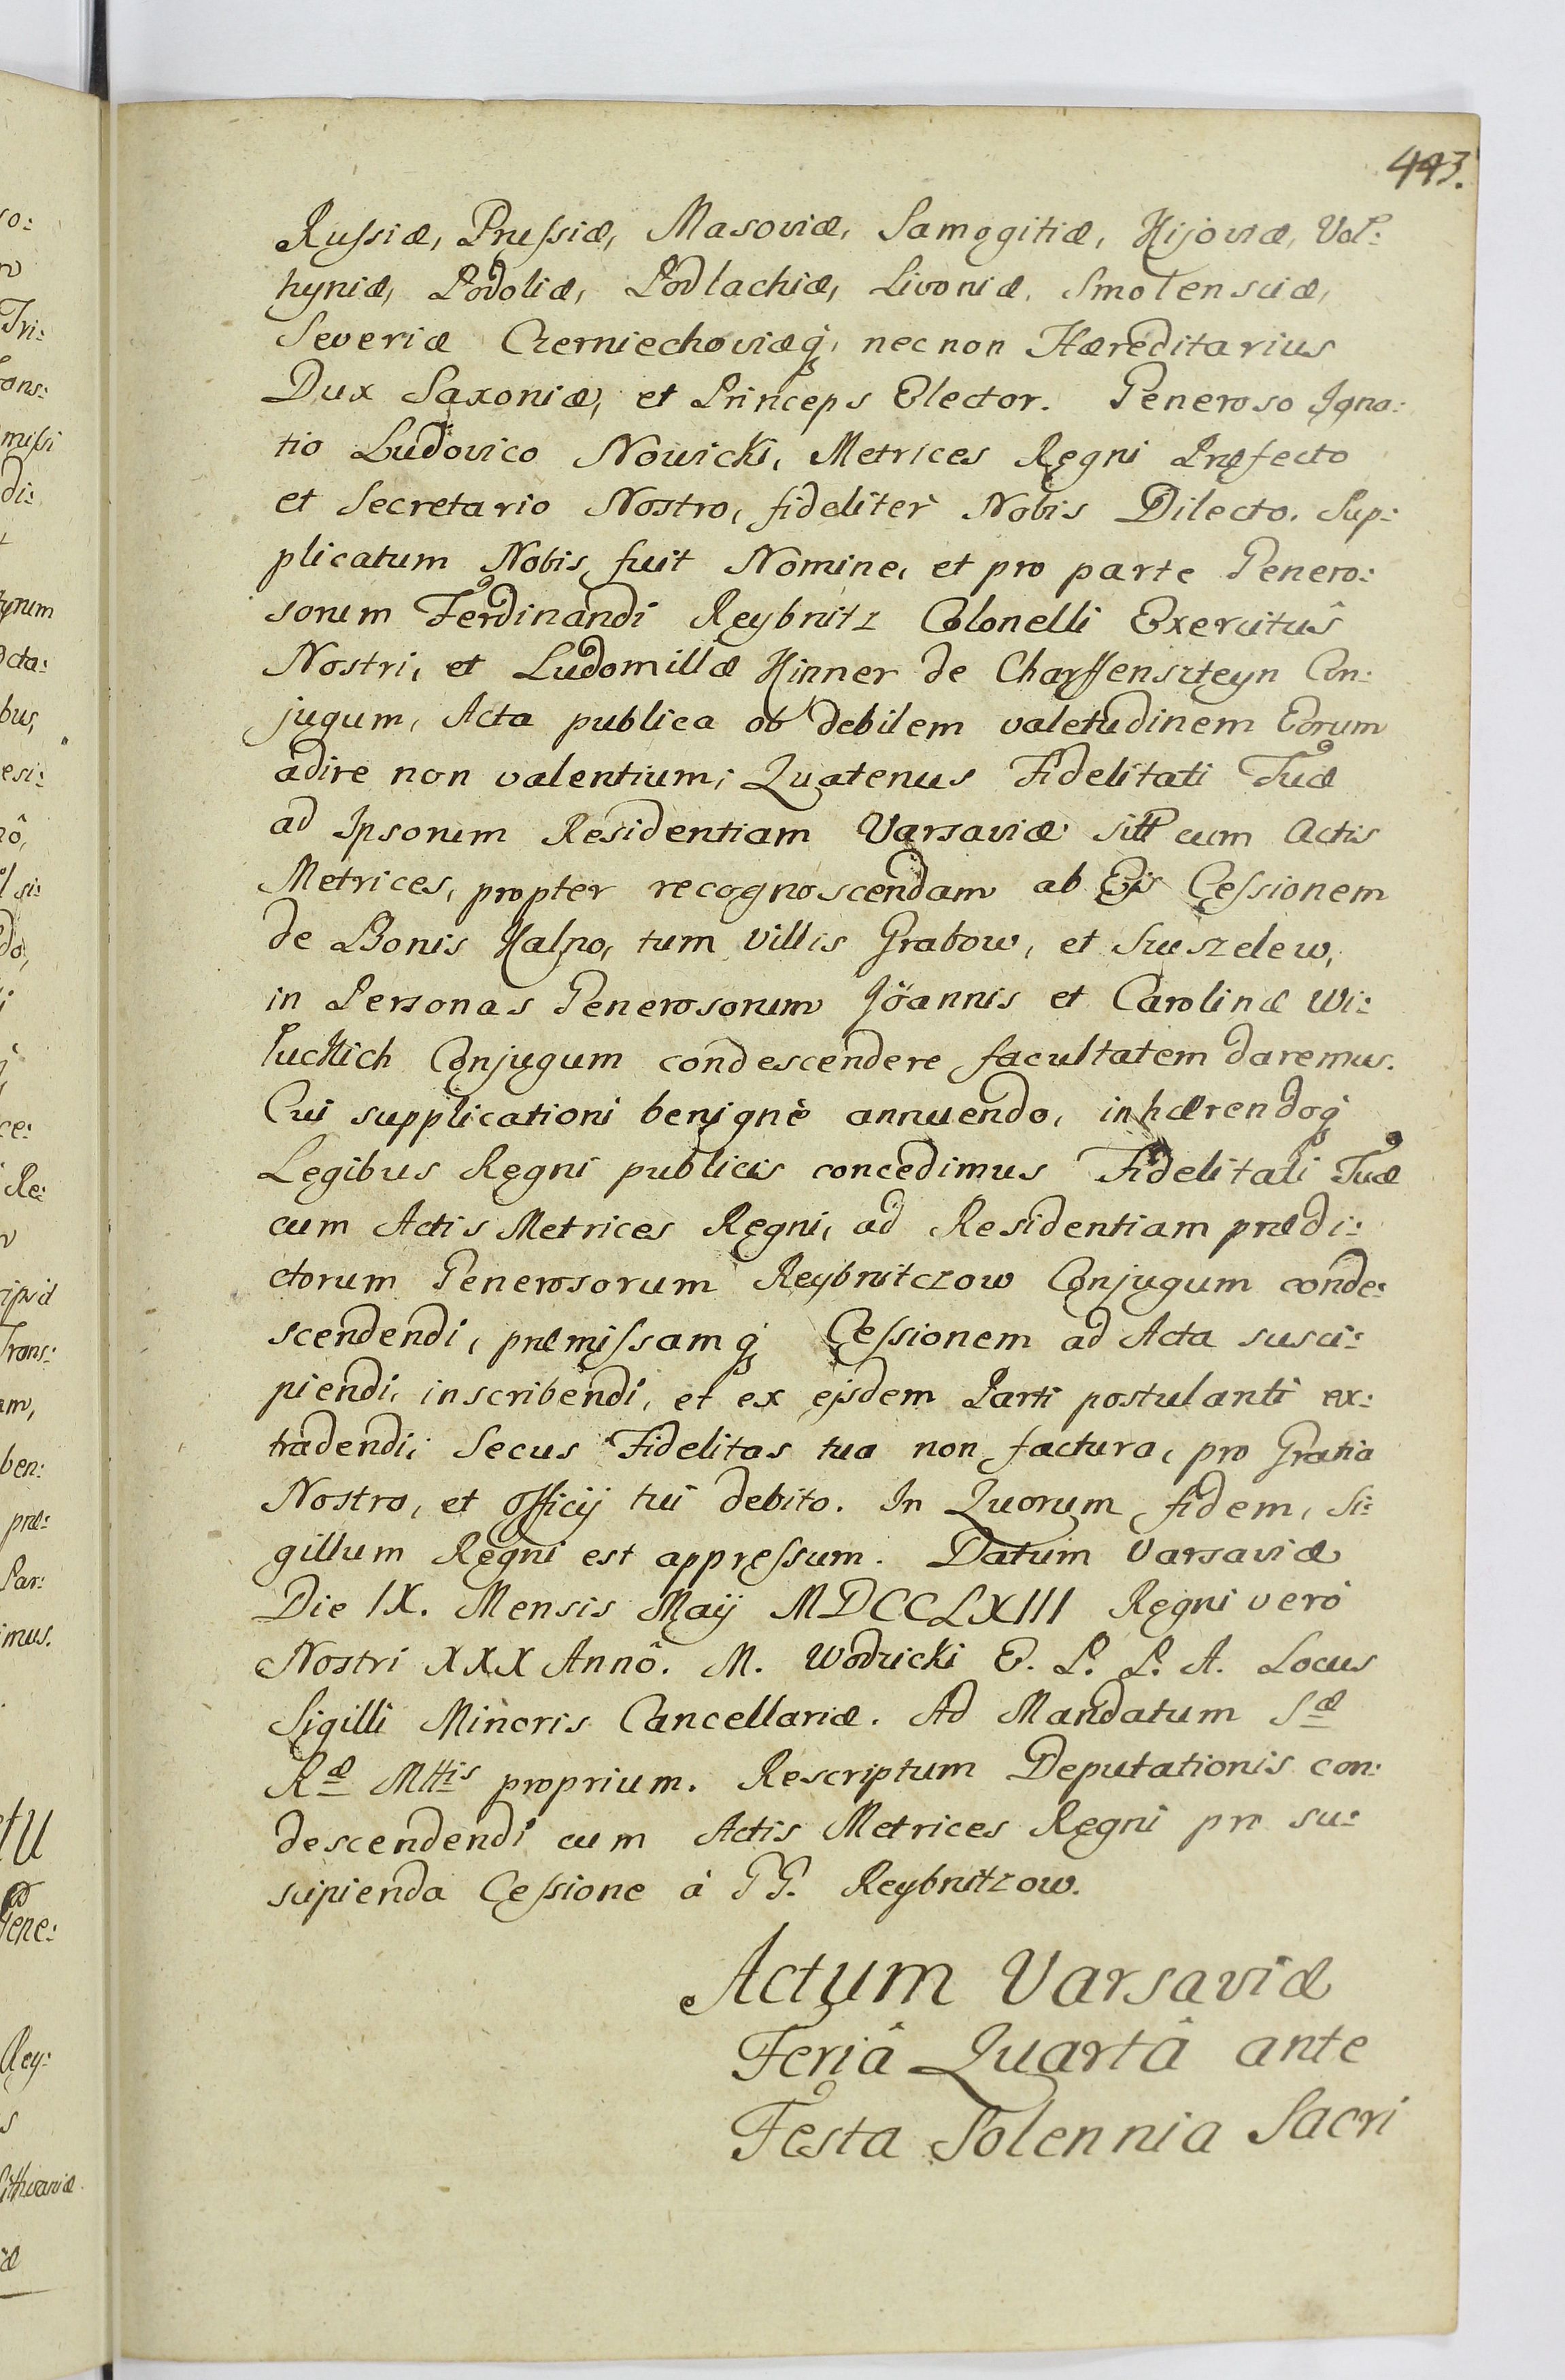 443.
Russiæ, Prussiæ, Masoviæ, Samogitiæ, Kijoviæ, Vol:
hyniæ, Podoliæ, Podlachiæ, Livoniæ, Smolensciæ,
Severiæ Czerniechoviæq̃, necnon Hæreditarius
Dux Saxoniæ, et Princeps Elector. Generoso Igna:
tio Ludovico Nowicki, Metrices Regni Præfecto
et Secretario Nostro, fideliter Nobis Dilecto. Sup:
plicatum Nobis fuit Nomine, et pro parte Genero:
sorum Ferdinandi Reybnitz Colonelli Exercitûs
Nostri, et Ludomillæ Hinner de Charffenszteyn Con:
jugum, Acta publica ob debilem valetudinem Eorum
adire non valentium; Quatenus Fidelitati Tuæ
ad Ipsorum Residentiam Varsaviæ sitt cum Actis
Metrices, propter recognoscendam ab Eis Cessionem
de Bonis Kalno, tum villis Grabow, et Suszelew,
in Personas Generosorum Jöannis et Carolinæ Wi:
luckich Conjugum condescendere facultatem daremus.
Cui supplicationi benignè annuendo, inhærendoq̃
Legibus Regni publicis concedimus Fidelitati Tuæ
cum Actis Metrices Regni, ad Residentiam prædi:
ctorum Generosorum Reybnitczow Conjugum conde:
scendendi, præmissamq̃ Cessionem ad Acta susci:
piendi, inscribendi, et ex ejsdem Parti postulanti ex:
tradendi; Secus Fidelitas tua non factura, pro Gratia
Nostra, et Officij tui debito. In Quorum fidem, Si:
gillum Regni est appressum. Datum Varsaviæ
Die IX. Mensis Maij MDCCLXIII Regni verò
Nostri XXX Annô. M. Wodzicki E. P. P. A. Locus
Sigilli Minoris Cancellariæ. Ad Mandatum Sæ
Ræ Mttis proprium. Rescriptum Deputationis con:
descendendi cum Actis Metrices Regni pro su:
scipienda Cessione à GG. Reybnitzow.
Actum Varsaviæ
Feriâ Quartâ ante
Festa Solennia Sacri